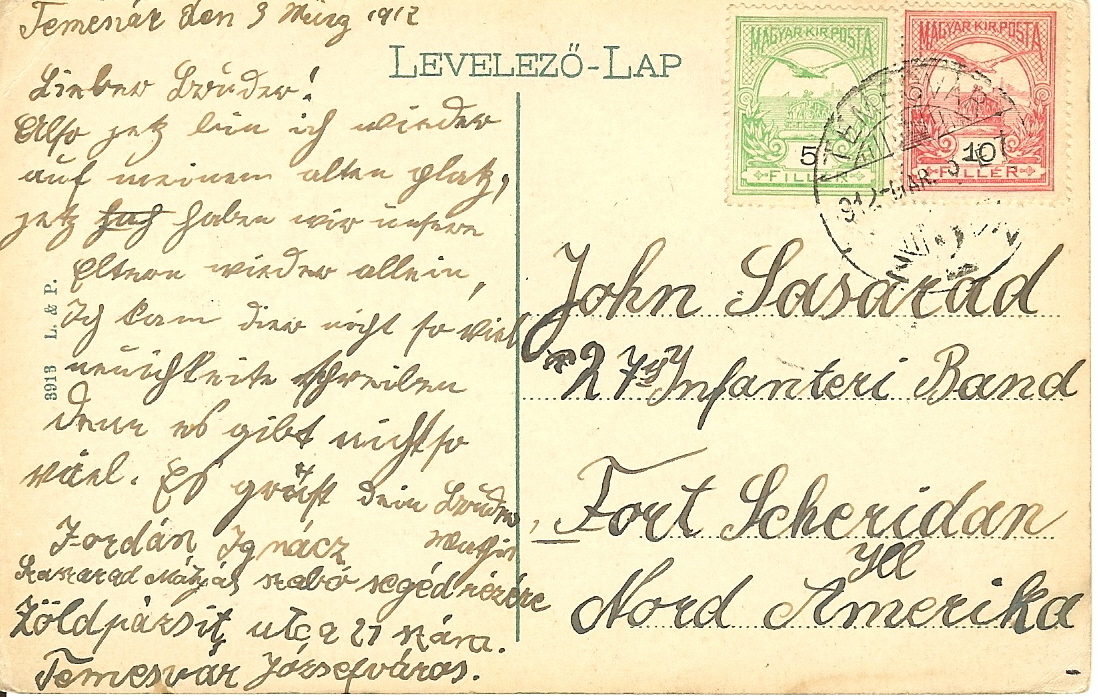 Temesvár den 3 März 1912
LEVELEZŐ-LAP
Lieber Bruder!
Also jetz bin ich wieder
auf meinem alten platz,
jetz haben wir unsere
Eltern wieder allein,
Ich kam dier nicht so viel
neuichkeite schreiben
denn es gibt nicht so
viel. Es grüst dein Bruder
Jordán Ignácz
Mátyás szabó segéd részére
Zöldpázsit utca 21 szám.
Temesvár Józsefváros.
3913 L. & P.
MAGYAR KIR. POSTA
5
FILLÉR
MAGYAR KIR. POSTA
10
FILLÉR
TEMESVÁR
912 MÁR. 3
John Sasarad
27 Infanteri Band
Fort Scheridan
Ill
Nord Amerika